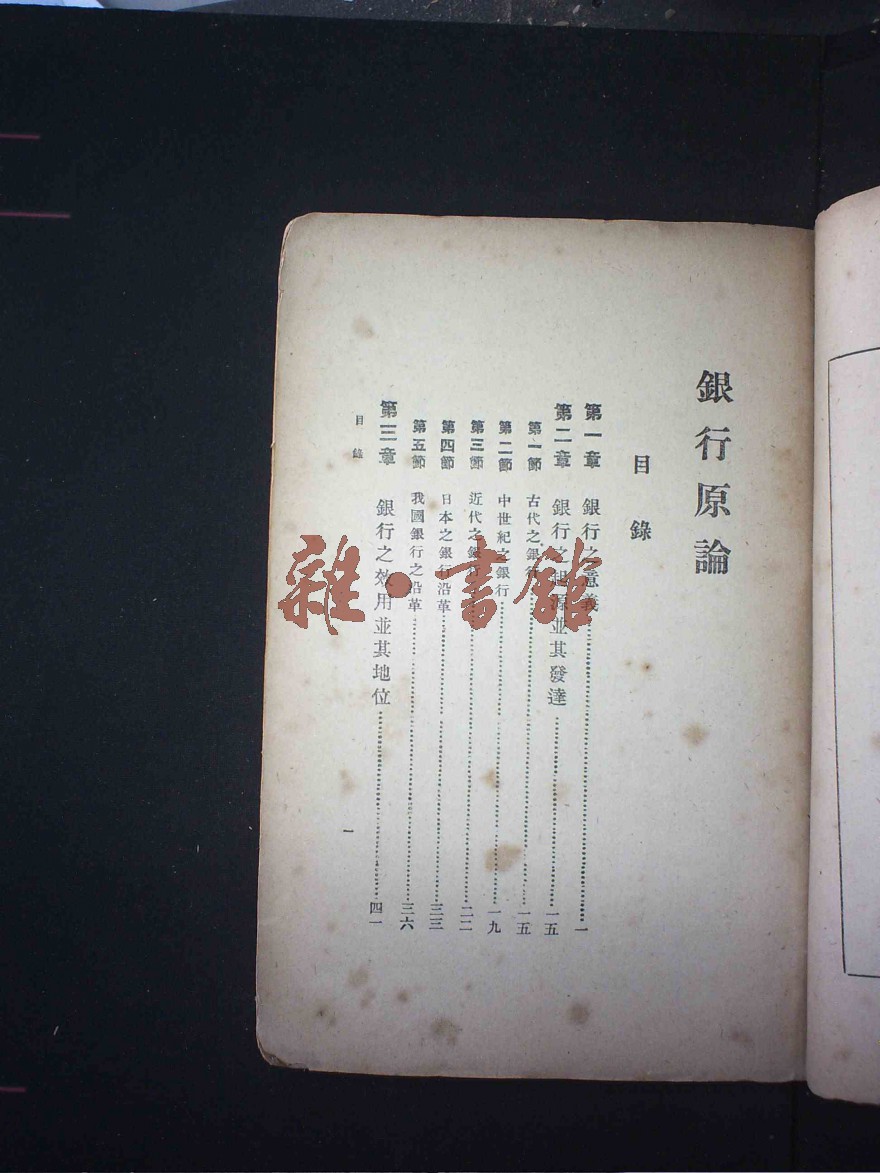 銀行原論
目錄
第一章 銀行之意義……一
第二章 銀行之起源並其發達……一五
第一節 古代之銀行……一五
第二節 中世紀之銀行……一九
第三節 近代之銀行……二二
第四節 日本之銀行沿革……三三
第五節 我國銀行之沿革……三六
第三章 銀行之效用並其地位……四一
目錄
一
雜·書館